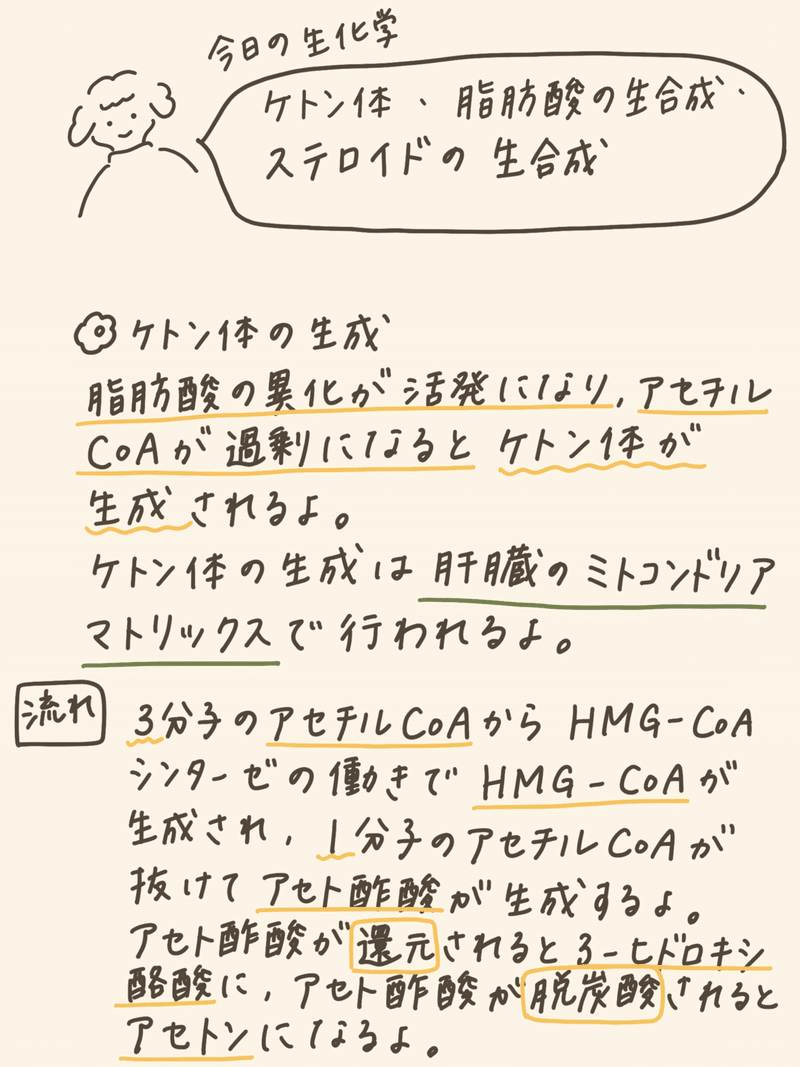 今日の生化学
ケトン体、脂肪酸の生合成・
ステロイドの生合成
ケトン体の生成
脂肪酸の異化が活発になり,アセチル
CoAが過剰になるとケトン体が
生成されるよ。
ケトン体の生成は肝臓のミトコンドリア
マトリックスで行われるよ。
流れ
3分子のアセチルCoAからHMG-CoA
シンターゼの働きでHMG-CoAが
生成され,1分子のアセチルCoAが
抜けてアセト酢酸が生成するよ。
アセト酢酸が還元されると3-ヒドロキシ
酪酸に,アセト酢酸が脱炭酸されると
アセトンになるよ。